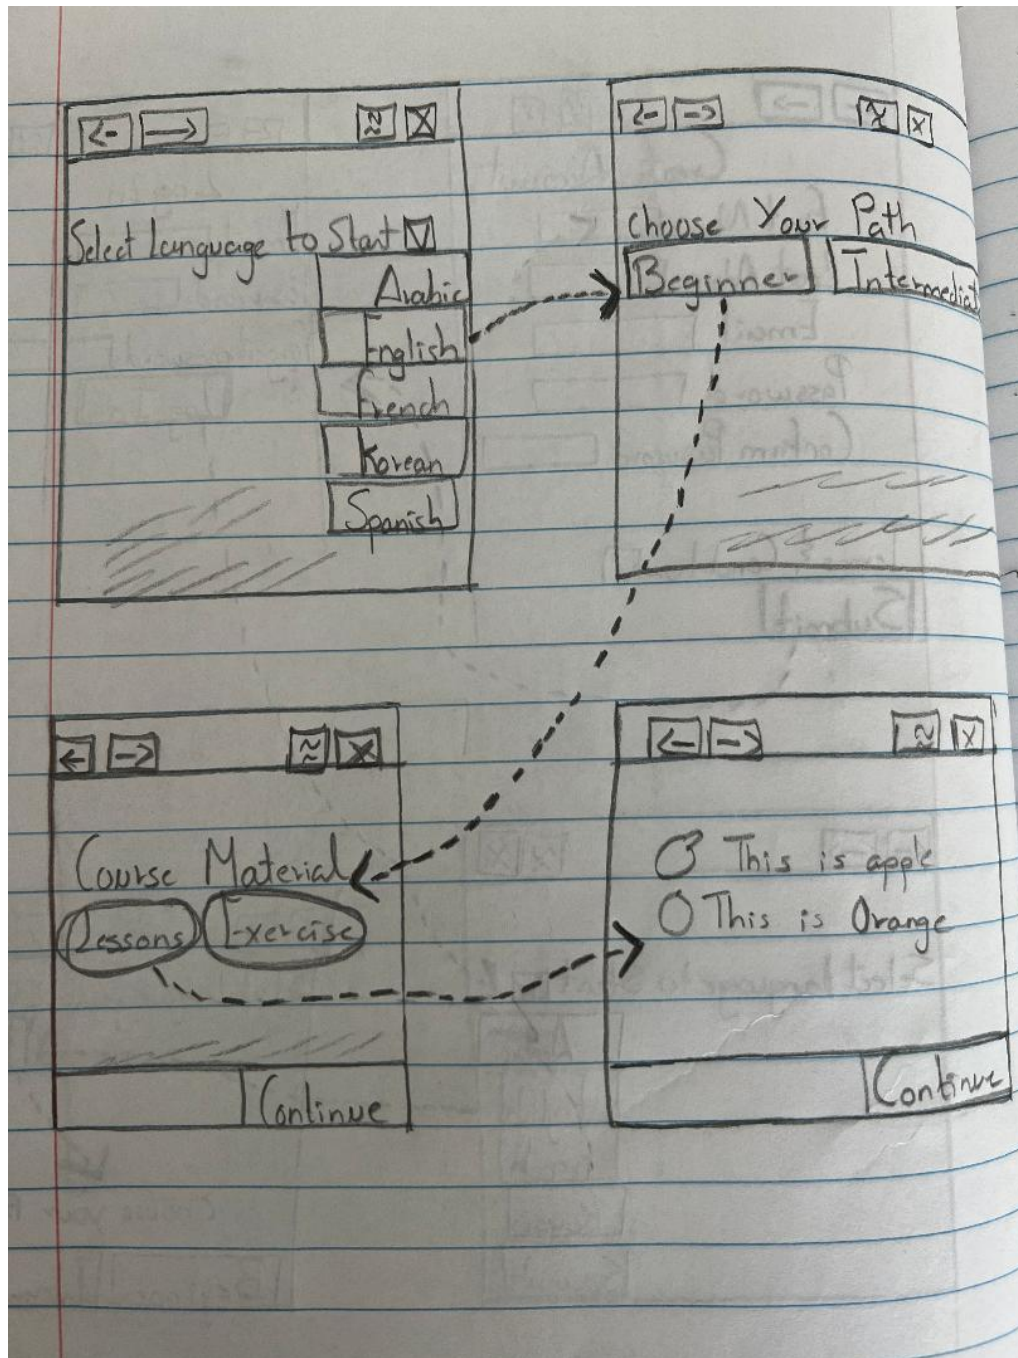 Select language to Start
Arabic
English
French
Korean
Spanish
choose Your Path
Beginner
Intermediat
Course Material
Lessons Exercise
Continue
This is apple
This is Orange
Continue